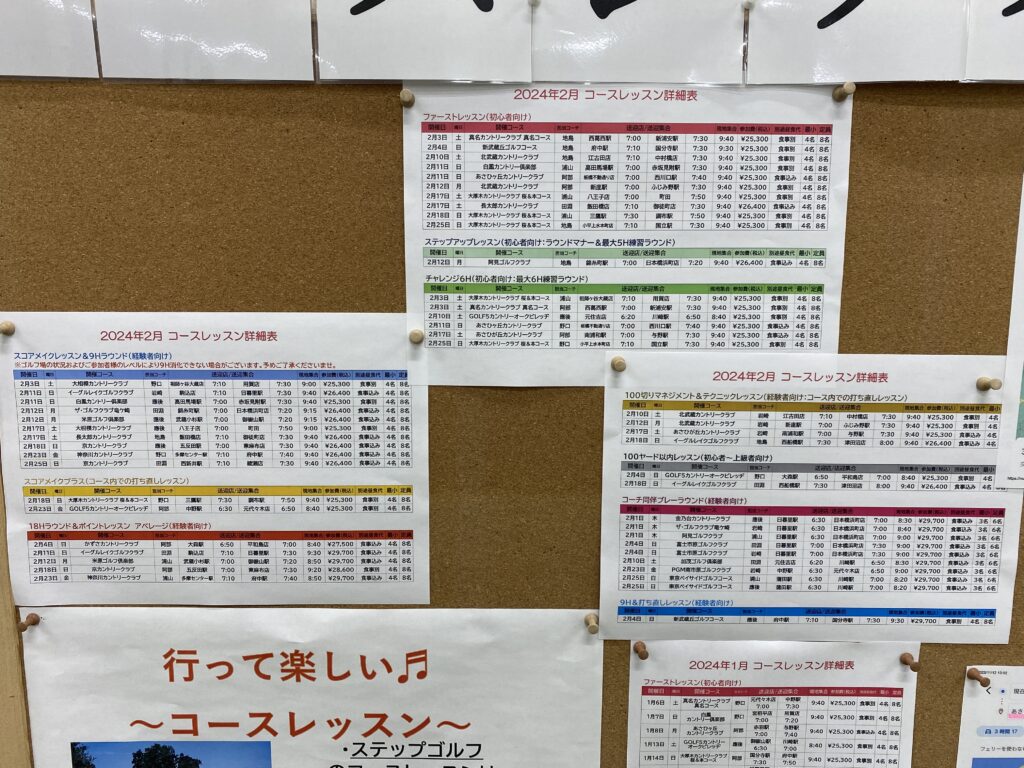 2024年2月 コースレッスン詳細表
ファーストレッスン(初心者向け)
開催日 曜日 開催コース 担当コーチ 送迎店/送迎集合 現地集合 参加費(税込) 別途昼食代 最小 定員
2月3日 土 真名カントリークラブ 真名コース 地島 西葛西駅 7:00 新浦安駅 7:30 9:30 ¥25,300 食事別 4名 8名
2月4日 日 新武蔵丘ゴルフコース 地島 府中駅 7:10 国分寺駅 7:30 9:30 ¥25,300 食事別 4名 8名
2月10日 土 北武蔵カントリークラブ 地島 江古田店 7:10 中村橋店 7:30 9:40 ¥25,300 食事別 4名 8名
2月11日 日 白鳳カントリー倶楽部 浦山 高田馬場駅 7:00 赤坂見附駅 7:30 9:40 ¥25,300 食事別 4名 8名
2月11日 日 あさひヶ丘カントリークラブ 阿部 板橋不動通り店 7:00 西川口駅 7:40 9:40 ¥25,300 食事込み 4名 8名
2月12日 月 北武蔵カントリークラブ 阿部 新座駅 7:00 ふじみ野駅 7:30 9:40 ¥25,300 食事別 4名 8名
2月17日 土 大厚木カントリークラブ 桜&本コース 浦山 八王子店 7:10 町田 7:50 9:40 ¥25,300 食事別 4名 8名
2月17日 土 長太郎カントリークラブ 田淵 飯田橋店 7:10 御徒町店 7:30 9:40 ¥26,400 食事込み 4名 8名
2月18日 日 大厚木カントリークラブ 桜&本コース 浦山 三鷹駅 7:30 調布駅 7:50 9:40 ¥25,300 食事別 4名 8名
2月25日 日 大厚木カントリークラブ 桜&本コース 地島 小平上水本町店 7:10 国立駅 7:30 9:40 ¥25,300 食事別 4名 8名
ステップアップレッスン(初心者向け:ラウンドマナー&最大5H練習ラウンド)
開催日 曜日 開催コース 担当コーチ 送迎店/送迎集合 現地集合 参加費(税込) 別途昼食代 最小 定員
2月12日 月 阿見ゴルフクラブ 地島 錦糸町駅 7:00 日本橋浜町店 7:20 9:40 ¥26,400 食事込み 4名 8名
チャレンジ6H(初心者向け:最大6H練習ラウンド)
開催日 曜日 開催コース 担当コーチ 送迎店/送迎集合 現地集合 参加費(税込) 別途昼食代 最小 定員
2月3日 土 大厚木カントリークラブ 桜&本コース 浦山 祖師ヶ谷大蔵店 7:10 用賀店 7:30 9:40 ¥25,300 食事別 4名 8名
2月3日 土 真名カントリークラブ 真名コース 阿部 西葛西駅 7:00 新浦安駅 7:30 9:40 ¥25,300 食事別 4名 8名
2月10日 土 GOLF5カントリーオークビレッヂ 應後 元住吉店 6:20 川崎駅 6:50 8:40 ¥25,300 食事別 4名 8名
2月11日 日 あさひヶ丘カントリークラブ 野口 板橋不動通り店 7:00 西川口駅 7:40 9:40 ¥25,300 食事込み 4名 8名
2月17日 土 あさひヶ丘カントリークラブ 阿部 南浦和駅 7:00 与野駅 7:30 9:40 ¥25,300 食事込み 4名 8名
2月25日 日 大厚木カントリークラブ 桜&本コース 野口 小平上水本町店 7:10 国立駅 7:30 9:40 ¥25,300 食事別 4名 8名
2024年2月 コースレッスン詳細表
スコアメイクレッスン&9Hラウンド(経験者向け)
※ゴルフ場の状況およびご参加者様のレベルにより9H消化できない場合がございます。予めご了承くださいませ。
開催日 曜日 開催コース 担当コーチ 送迎店/送迎集合 現地集合 参加費(税込) 別途昼食代 最小 定員
2月3日 土 大相模カントリークラブ 野口 祖師ヶ谷大蔵店 7:10 用賀店 7:30 9:00 ¥25,300 食事別 4名 8名
2月11日 日 イーグルレイクゴルフクラブ 岩崎 駒込店 7:10 日暮里駅 7:30 9:15 ¥26,400 食事込み 4名 8名
2月11日 日 白鳳カントリー倶楽部 應後 高田馬場駅 7:00 赤坂見附駅 7:30 9:40 ¥25,300 食事別 4名 8名
2月12日 月 ザ・ゴルフクラブ竜ケ崎 田淵 錦糸町駅 7:00 日本橋浜町店 7:20 9:15 ¥26,400 食事込み 4名 8名
2月12日 月 米原ゴルフ倶楽部 應後 武蔵小杉駅 7:00 御嶽山駅 7:20 9:15 ¥26,400 食事込み 4名 8名
2月17日 土 大相模カントリークラブ 應後 八王子店 7:00 町田 7:30 9:00 ¥25,300 食事別 4名 8名
2月17日 土 長太郎カントリークラブ 地島 飯田橋店 7:10 御徒町店 7:30 9:40 ¥26,400 食事込み 4名 8名
2月18日 日 京カントリークラブ 應後 五反田駅 7:00 東麻布店 7:30 9:40 ¥26,400 食事込み 4名 8名
2月23日 金 神奈川カントリークラブ 野口 多摩センター駅 7:10 府中駅 7:40 9:40 ¥26,400 食事込み 4名 8名
2月25日 日 京カントリークラブ 田淵 西新井駅 7:10 綾瀬店 7:30 9:40 ¥26,400 食事込み 4名 8名
スコアメイクプラス(コース内での打ち直しレッスン)
開催日 曜日 開催コース 担当コーチ 送迎店/送迎集合 現地集合 参加費(税込) 別途昼食代 最小 定員
2月18日 日 大厚木カントリークラブ 桜&本コース 野口 三鷹駅 7:30 調布駅 7:50 9:40 ¥25,300 食事別 4名 8名
2月23日 金 GOLF5カントリーオークビレッヂ 阿部 中野駅 6:30 元代々木店 6:50 8:40 ¥25,300 食事別 4名 8名
18Hラウンド&ポイントレッスン アベレージ(経験者向け)
開催日 曜日 開催コース 担当コーチ 送迎店/送迎集合 現地集合 参加費(税込) 別途昼食代 最小 定員
2月4日 日 かずさカントリークラブ 阿部 大森駅 6:50 平和島店 7:00 8:40 ¥27,500 食事込み 4名 8名
2月11日 日 イーグルレイクゴルフクラブ 田淵 駒込店 7:10 日暮里駅 7:30 9:30 ¥29,700 食事込み 4名 8名
2月12日 月 米原ゴルフ倶楽部 浦山 武蔵小杉駅 7:00 御嶽山駅 7:20 8:50 ¥29,700 食事込み 4名 8名
2月18日 日 京カントリークラブ 阿部 五反田駅 7:00 東麻布店 7:30 9:20 ¥28,600 食事込み 4名 8名
2月23日 金 神奈川カントリークラブ 浦山 多摩センター駅 7:10 府中駅 7:40 8:50 ¥29,700 食事込み 4名 8名
2024年2月 コースレッスン詳細表
100切りマネジメント&テクニックレッスン(経験者向け:コース内での打ち直しレッスン)
開催日 曜日 開催コース 担当コーチ 送迎店/送迎集合 現地集合 参加費(税込) 別途昼食代 最小
2月10日 土 北武蔵カントリークラブ 岩崎 江古田店 7:10 中村橋店 7:30 9:40 ¥25,300 食事別 4名
2月12日 月 北武蔵カントリークラブ 岩崎 新座駅 7:00 ふじみ野駅 7:30 9:40 ¥25,300 食事別 4名
2月17日 土 あさひが丘カントリークラブ 岩崎 南浦和駅 7:00 与野駅 7:30 9:40 ¥25,300 食事込み 4名
2月18日 日 イーグルレイクゴルフクラブ 地島 西船橋駅 7:30 津田沼店 8:00 9:40 ¥26,400 食事込み 4名
100ヤード以内レッスン(初心者~上級者向け)
開催日 曜日 開催コース 担当コーチ 送迎店/送迎集合 現地集合 参加費(税込) 別途昼食代 最小
2月4日 日 GOLF5カントリーオークビレッヂ 野口 大森駅 6:50 平和島店 7:00 8:40 ¥25,300 食事別 4名
2月18日 日 イーグルレイクゴルフクラブ 田淵 西船橋駅 7:30 津田沼店 8:00 9:40 ¥26,400 食事込み 4名
コーチ同伴プレーラウンド(経験者向け)
開催日 曜日 開催コース 担当コーチ 送迎店/送迎集合 現地集合 参加費(税込) 別途昼食代 最小 定員
2月1日 木 金乃台カントリークラブ 應後 日暮里駅 6:30 日本橋浜町店 7:00 8:30 ¥29,700 食事込み 3名 6名
2月1日 木 ザ・ゴルフクラブ竜ケ崎 岩崎 日暮里駅 6:30 日本橋浜町店 7:00 8:40 ¥29,700 食事込み 3名 6名
2月1日 木 阿見ゴルフクラブ 浦山 日暮里駅 6:30 日本橋浜町店 7:00 9:00 ¥29,700 食事込み 3名 6名
2月4日 日 富士市原ゴルフクラブ 田淵 日暮里駅 7:00 日本橋浜町店 7:30 9:00 ¥29,700 食事込み 3名 6名
2月4日 日 富士市原ゴルフクラブ 岩崎 日暮里駅 7:00 日本橋浜町店 7:30 9:00 ¥29,700 食事込み 3名 6名
2月10日 土 加茂ゴルフ倶楽部 田淵 元住吉店 6:20 川崎駅 6:50 8:30 ¥29,700 食事込み 3名 6名
2月23日 金 PGM南市原ゴルフクラブ 岩崎 中野駅 6:30 元代々木店 6:50 9:00 ¥29,700 食事込み 3名 6名
2月25日 日 東京ベイサイドゴルフコース 浦山 蒲田駅 6:30 川崎駅 7:00 8:20 ¥29,700 食事込み 3名 6名
2月25日 日 東京ベイサイドゴルフコース 應後 蒲田駅 6:30 川崎駅 7:00 8:20 ¥29,700 食事込み 3名 6名
9H&打ち直しレッスン(経験者向け)
開催日 曜日 開催コース 担当コーチ 送迎店/送迎集合 現地集合 参加費(税込) 別途昼食代 最小 定員
2月4日 日 新武蔵丘ゴルフコース 應後 府中駅 7:10 国分寺駅 7:30 9:30 ¥29,700 食事別 4名 8名
行って楽しい♬
~コースレッスン~
・ステップゴルフ
2024年1月 コースレッスン詳細表
ファーストレッスン(初心者向け)
開催日 曜日 開催コース 送迎店/送迎集合 現地集合 参加費(税込) 最小 定員
1月6日 土 真名カントリークラブ 真名コース 野口 元代々木店 7:00 中野駅 7:30 9:40 ¥25,300 食事別 4名 8名
1月7日 日 白鳳カントリー倶楽部 7:00 7:20 9:40 ¥25,300 食事別 4名 8名
1月8日 月 あさひヶ丘カントリークラブ 阿部 7:00 与野駅 7:30 9:40 ¥25,300 食事込み 4名 8名
1月13日 土 GOLF5カントリーオークビレッヂ 應後 御嶽山駅 6:30 川崎駅 7:00 8:40 ¥25,300 食事別 4名 8名
1月14日 日 大厚木カントリークラブ 桜&本コース 阿部 国分寺駅 7:00 府中駅 9:40 ¥25,300 食事別 4名 8名
3 時間 17